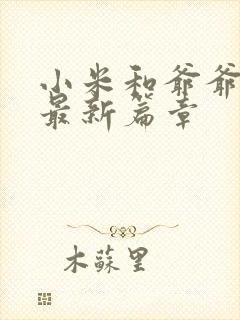 小米和爷爷
最新篇章
木蘇里